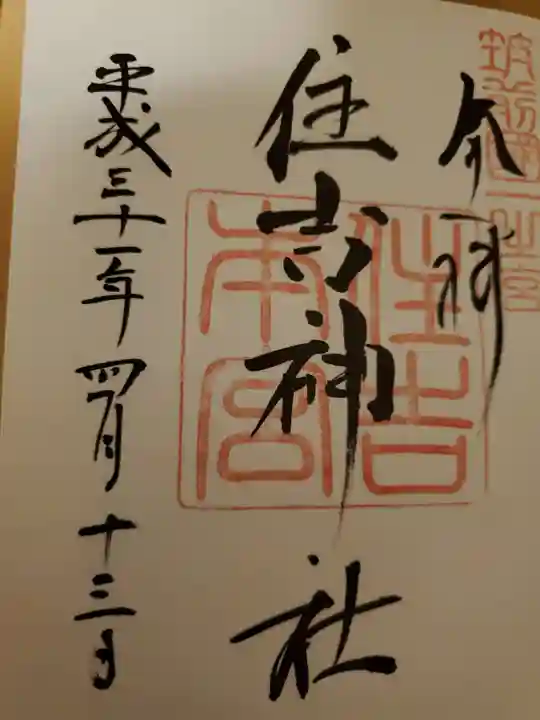 奉拝
筑前國一之宮
住吉神社
住吉本宮
平成三十一年四月十三日